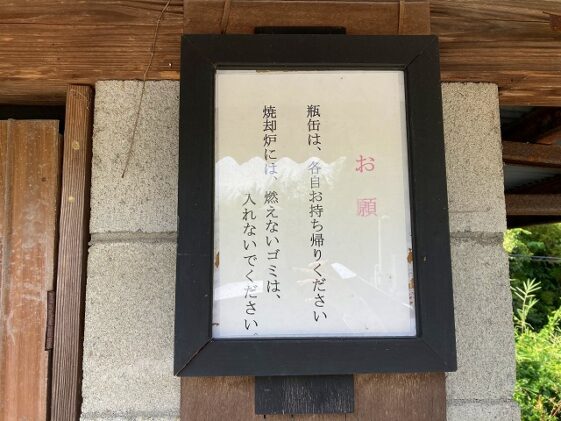 お願
瓶缶は、各自お持ち帰りください
焼却炉には、燃えないゴミは、
入れないでください。